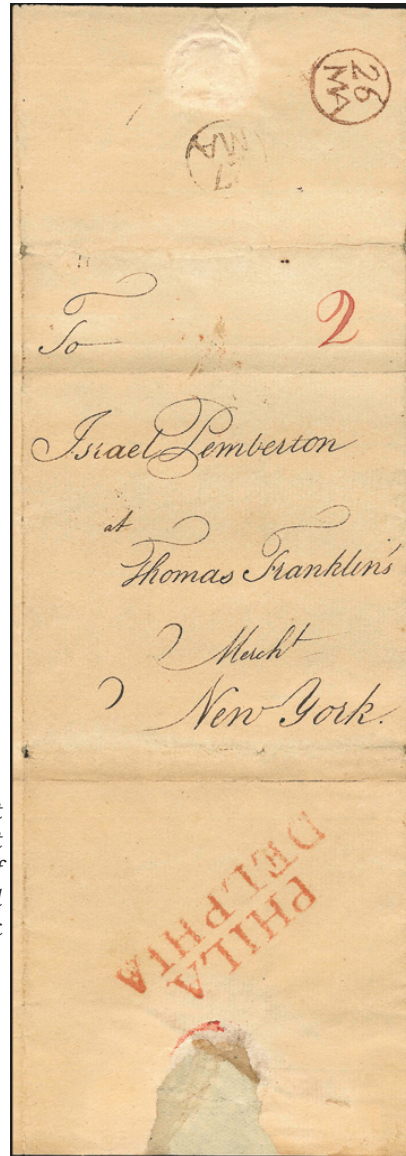 26
MA
7
MA
To
2
Israel Pemberton
at
Thomas Franklin's
Mercht
New York.
PHILA
DELPHIA